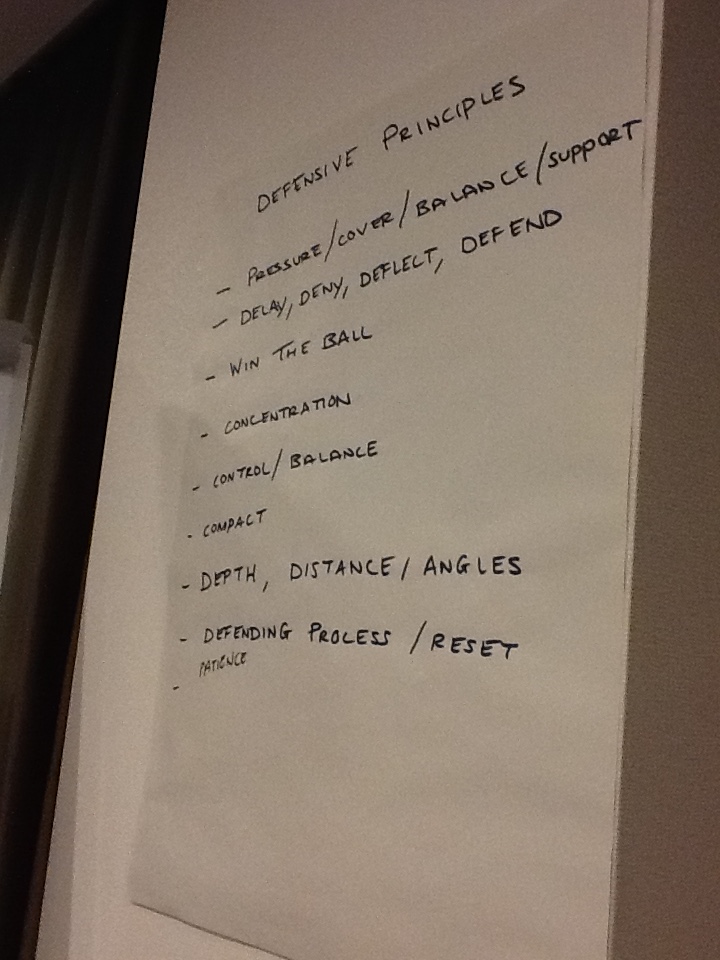 DEFENSIVE PRINCIPLES
- PRESSURE/COVER/BALANCE/SUPPORT
- DELAY, DENY, DEFLECT, DEFEND
- WIN THE BALL
- CONCENTRATION
- CONTROL/BALANCE
- COMPACT
- DEPTH, DISTANCE/ANGLES
- DEFENDING PROCESS/RESET
- PATIENCE